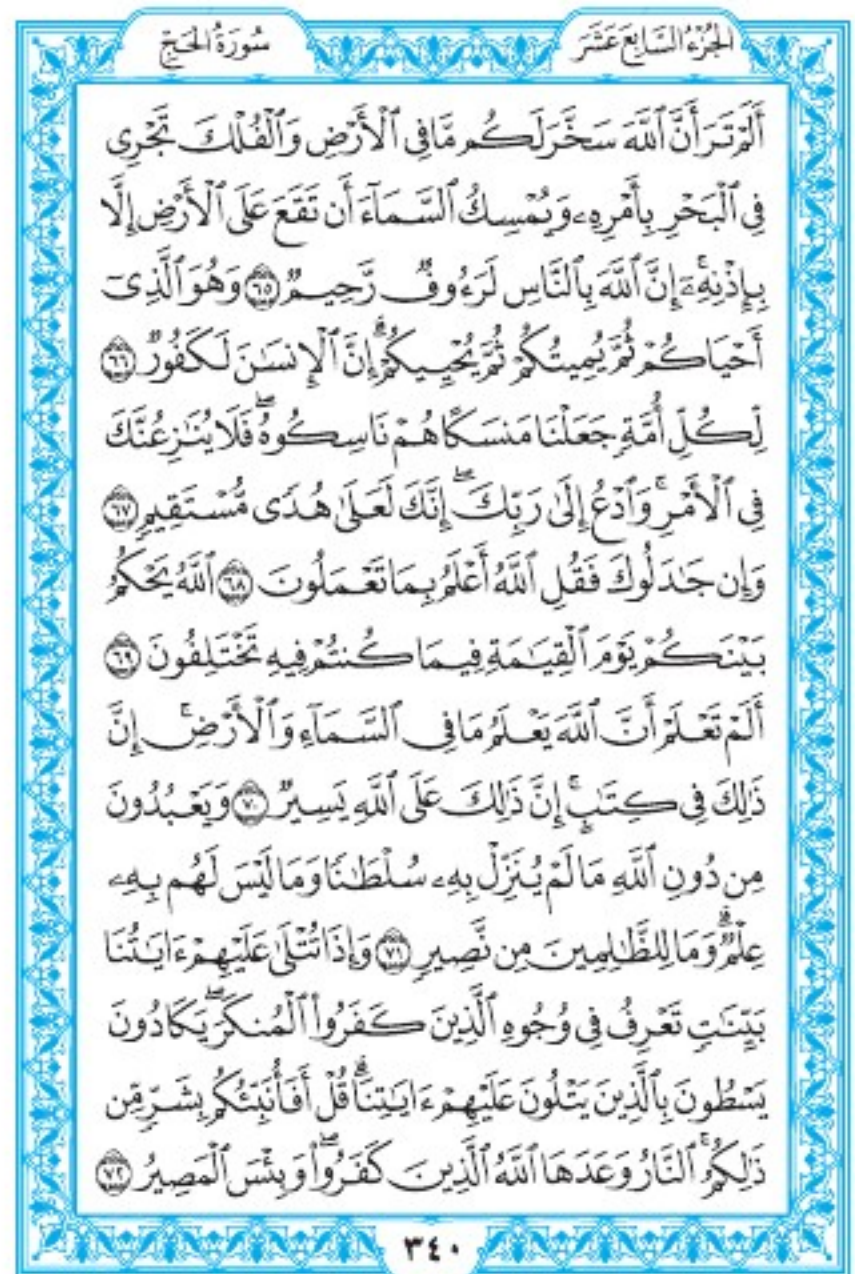 الجُزْءُ السَّابِعَ عَشَرَ
سُورَةُ الحَجِّ
أَلَمْ تَرَ أَنَّ ٱللَّهَ سَخَّرَ لَكُم مَّا فِى ٱلْأَرْضِ وَٱلْفُلْكَ تَجْرِى
فِى ٱلْبَحْرِ بِأَمْرِهِۦ وَيُمْسِكُ ٱلسَّمَآءَ أَن تَقَعَ عَلَى ٱلْأَرْضِ إِلَّا
بِإِذْنِهِۦٓ ۚ إِنَّ ٱللَّهَ بِٱلنَّاسِ لَرَءُوفٌ رَّحِيمٌ ٦٥ وَهُوَ ٱلَّذِىٓ
أَحْيَاكُمْ ثُمَّ يُمِيتُكُمْ ثُمَّ يُحْيِيكُمْ ۗ إِنَّ ٱلْإِنسَٰنَ لَكَفُورٌ ٦٦
لِّكُلِّ أُمَّةٍ جَعَلْنَا مَنسَكًا هُمْ نَاسِكُوهُ ۖ فَلَا يُنَٰزِعُنَّكَ
فِى ٱلْأَمْرِ ۚ وَٱدْعُ إِلَىٰ رَبِّكَ ۖ إِنَّكَ لَعَلَىٰ هُدًى مُّسْتَقِيمٍ ٦٧
وَإِن جَٰدَلُوكَ فَقُلِ ٱللَّهُ أَعْلَمُ بِمَا تَعْمَلُونَ ٦٨ ٱللَّهُ يَحْكُمُ
بَيْنَكُمْ يَوْمَ ٱلْقِيَٰمَةِ فِيمَا كُنتُمْ فِيهِ تَخْتَلِفُونَ ٦٩
أَلَمْ تَعْلَمْ أَنَّ ٱللَّهَ يَعْلَمُ مَا فِى ٱلسَّمَآءِ وَٱلْأَرْضِ ۚ إِنَّ
ذَٰلِكَ فِى كِتَٰبٍ ۚ إِنَّ ذَٰلِكَ عَلَى ٱللَّهِ يَسِيرٌ ٧٠ وَيَعْبُدُونَ
مِن دُونِ ٱللَّهِ مَا لَمْ يُنَزِّلْ بِهِۦ سُلْطَٰنًا وَمَا لَيْسَ لَهُم بِهِۦ
عِلْمٌ ۗ وَمَا لِلظَّٰلِمِينَ مِن نَّصِيرٍ ٧١ وَإِذَا تُتْلَىٰ عَلَيْهِمْ ءَايَٰتُنَا
بَيِّنَٰتٍ تَعْرِفُ فِى وُجُوهِ ٱلَّذِينَ كَفَرُوا۟ ٱلْمُنكَرَ ۖ يَكَادُونَ
يَسْطُونَ بِٱلَّذِينَ يَتْلُونَ عَلَيْهِمْ ءَايَٰتِنَا ۗ قُلْ أَفَأُنَبِّئُكُم بِشَرٍّ مِّن
ذَٰلِكُمُ ۚ ٱلنَّارُ وَعَدَهَا ٱللَّهُ ٱلَّذِينَ كَفَرُوا۟ ۖ وَبِئْسَ ٱلْمَصِيرُ ٧٢
٣٤٠